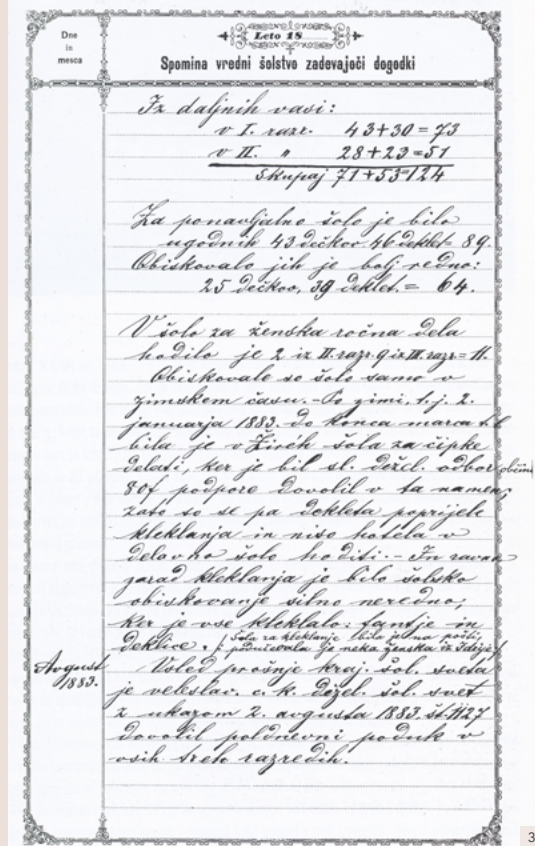 Dne
in
mesca
Leto 18
Spomina vredni šolstvo zadevajoči dogodki
Iz daljnih vasi:
v I. razr. 43+30=73
v II. " 28+23=51
Skupaj 71+53=124
Za ponavljalno šolo je bilo
ugodnih 43 dečkov 46 deklet= 89.
Obiskovalo jih je bolj redno:
25 dečkov, 39 deklet.= 64.
V šolo za ženska ročna dela
hodilo je 2 iz II. razr. 9 iz III. razr.= 11.
Obiskovale so šolo samo v
zimskem času. - Po zimi, t. j. 2.
januarja 1883. do konca marca t. l.
bila je v Žiréh šola za čipke
delati, ker je bil sl. dežel. odbor občini
80f podpore dovolil v ta namen;
zato so se pa dekleta poprijele
kleklanja in niso hotela v
delavno šolo hoditi. - In ravno
zarad kleklanja je bilo šolsko
obiskovanje silno neredno;
ker je vse kleklalo: fantje in
deklice. /: Šola za kleklanje bila je na pošti,
podučevala je neka ženska iz Idrije:/
Avgust
1883.
Usled prošnje kraj. šol. sveta
je veleslav. c. k. dežel. šol. svet
z ukazom 2. avgusta 1883. št. 1127
dovolil poldnevni poduk v
vsih treh razredih.
3